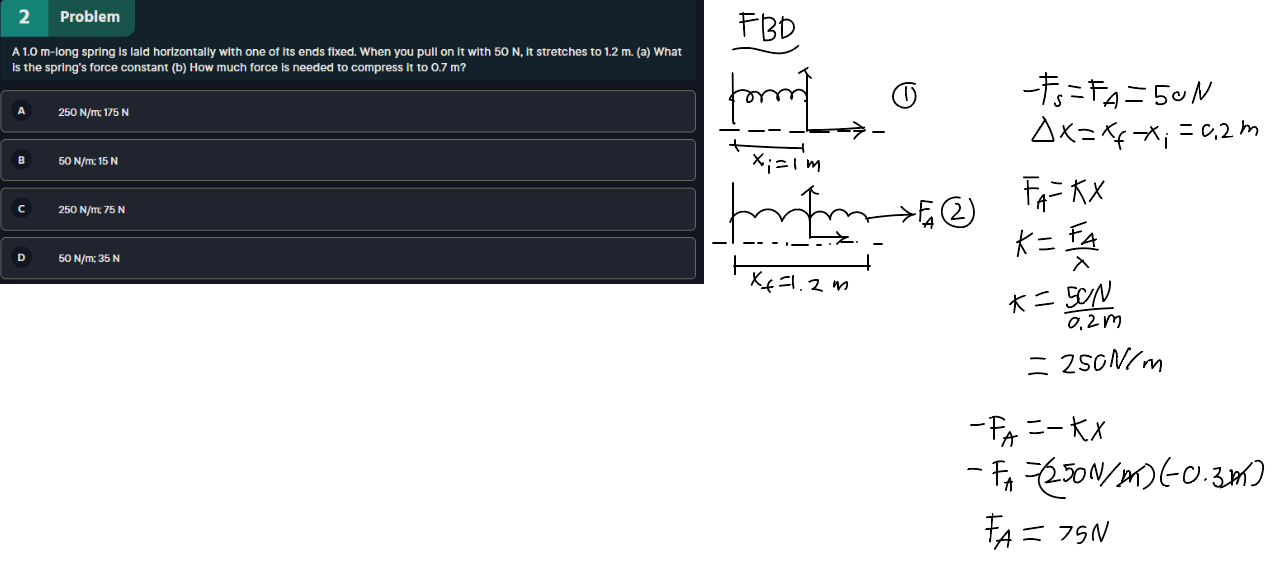 2 Problem
A 1.0 m-long spring is laid horizontally with one of its ends fixed. When you pull on it with 50 N, it stretches to 1.2 m. (a) What
is the spring's force constant (b) How much force is needed to compress it to 0.7 m?
A 250 N/m; 175 N
B 50 N/m; 15 N
C 250 N/m; 75 N
D 50 N/m; 35 N
FBD
①
x_i = 1 m
F_A ②
x_f = 1.2 m
-F_s = F_A = 50N
Δx = x_f - x_i = 0.2 m
F_A = Kx
K = F_A / x
K = 50N / 0.2m
= 250N/m
-F_A = -Kx
-F_A = (250N/m)(-0.3m)
F_A = 75N